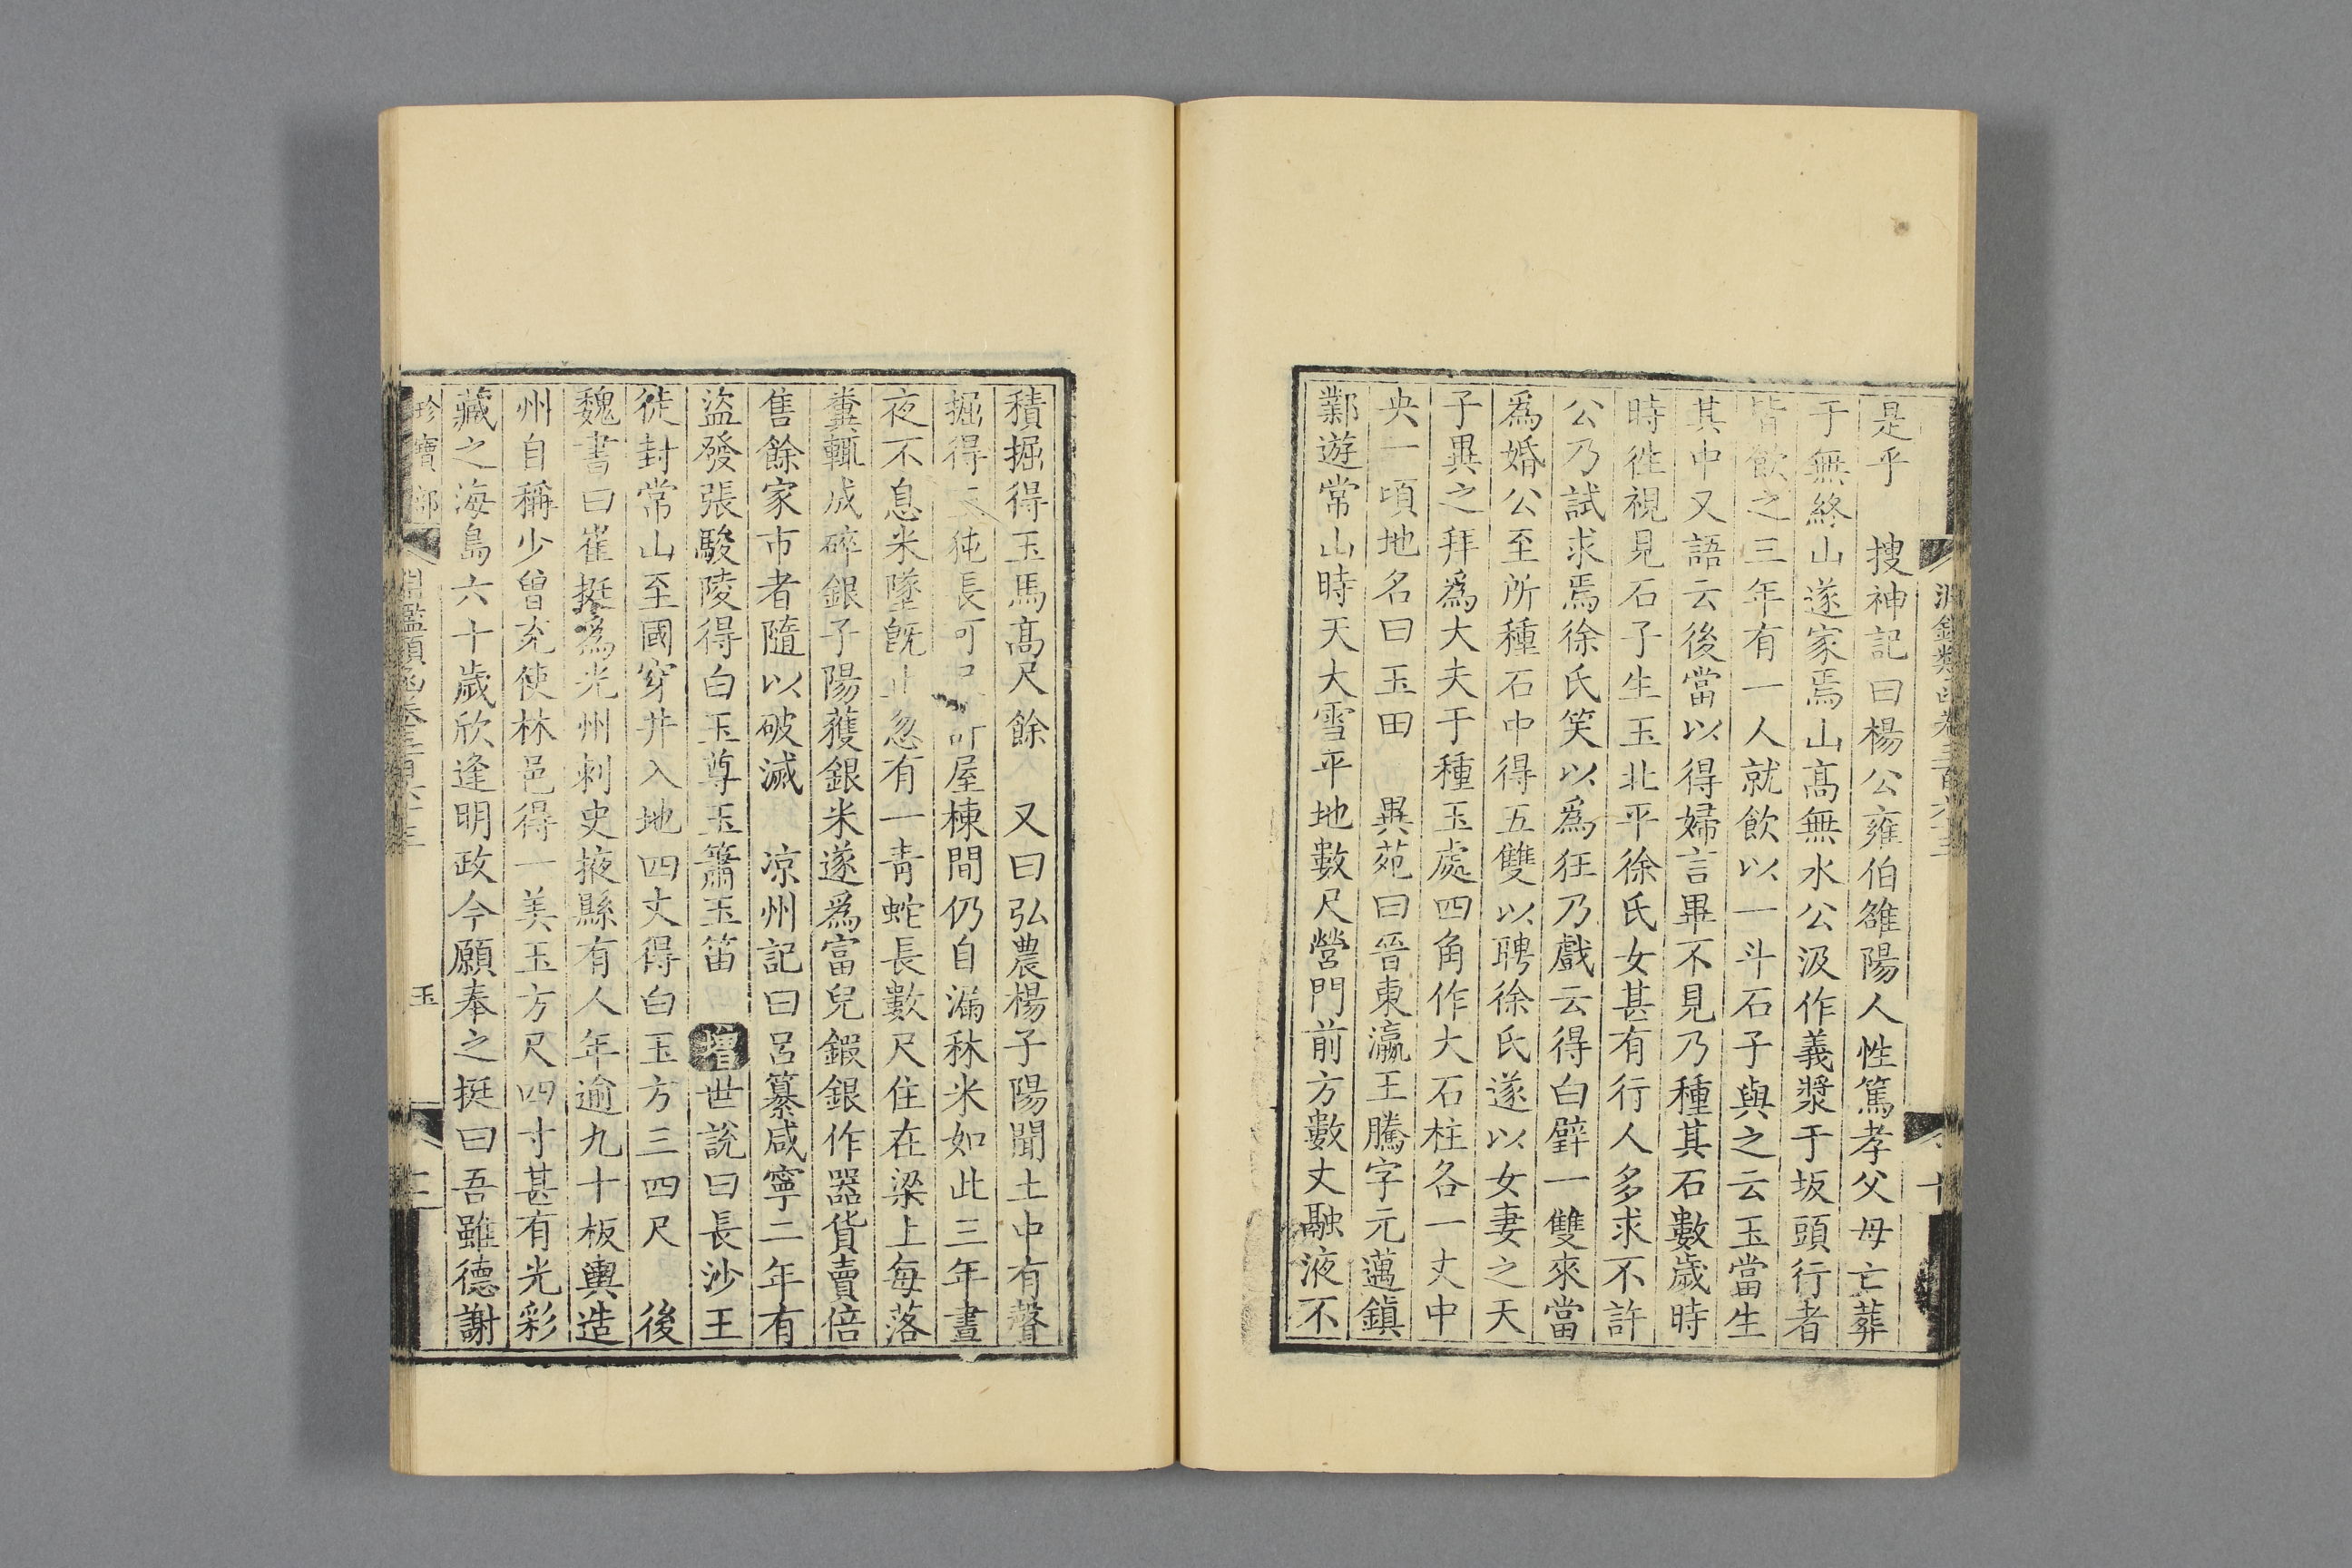 是乎　搜神記曰楊公雍伯雒陽人性篤孝父母亡葬
于無終山遂家焉山高無水公汲作義漿于坂頭行者
皆飲之三年有一人就飲以一斗石子與之云玉當生
其中又語云後當以得婦言畢不見乃種其石數歲時
時徃視見石子生玉北平徐氏女甚有行人多求不許
公乃試求焉徐氏笑以爲狂乃戲云得白璧一雙來當
爲婚公至所種石中得五雙以聘徐氏遂以女妻之天
子異之拜爲大夫于種玉處四角作大石柱各一丈中
央一頃地名曰玉田　異苑曰晉東瀛王騰字元邁鎮
鄴遊常山時天大雪平地數尺營門前方數丈融液不
積掘得玉馬高尺餘　又曰弘農楊子陽聞土中有聲
掘得㹠長可屋棟間仍自漏秫米如此三年晝
夜不息米墜旣止忽有一青蛇長數尺住在梁上每落
糞輒成碎銀子陽獲銀米遂爲富兒鍜銀作器貨賣倍
售餘家市者隨以破滅　凉州記曰呂纂咸寧二年有
盜發張駿陵得白玉尊玉簫玉笛　增世說曰長沙王
徙封常山至國穿井入地四丈得白玉方三四尺　後
魏書曰崔挺爲光州刺史掖縣有人年逾九十板輿造
州自稱少曾充使林邑得一美玉方尺四寸甚有光彩
藏之海島六十歲欣逢明政今願奉之挺曰吾雖德謝
珍寶部
淵鑑類函卷三百六十三
玉